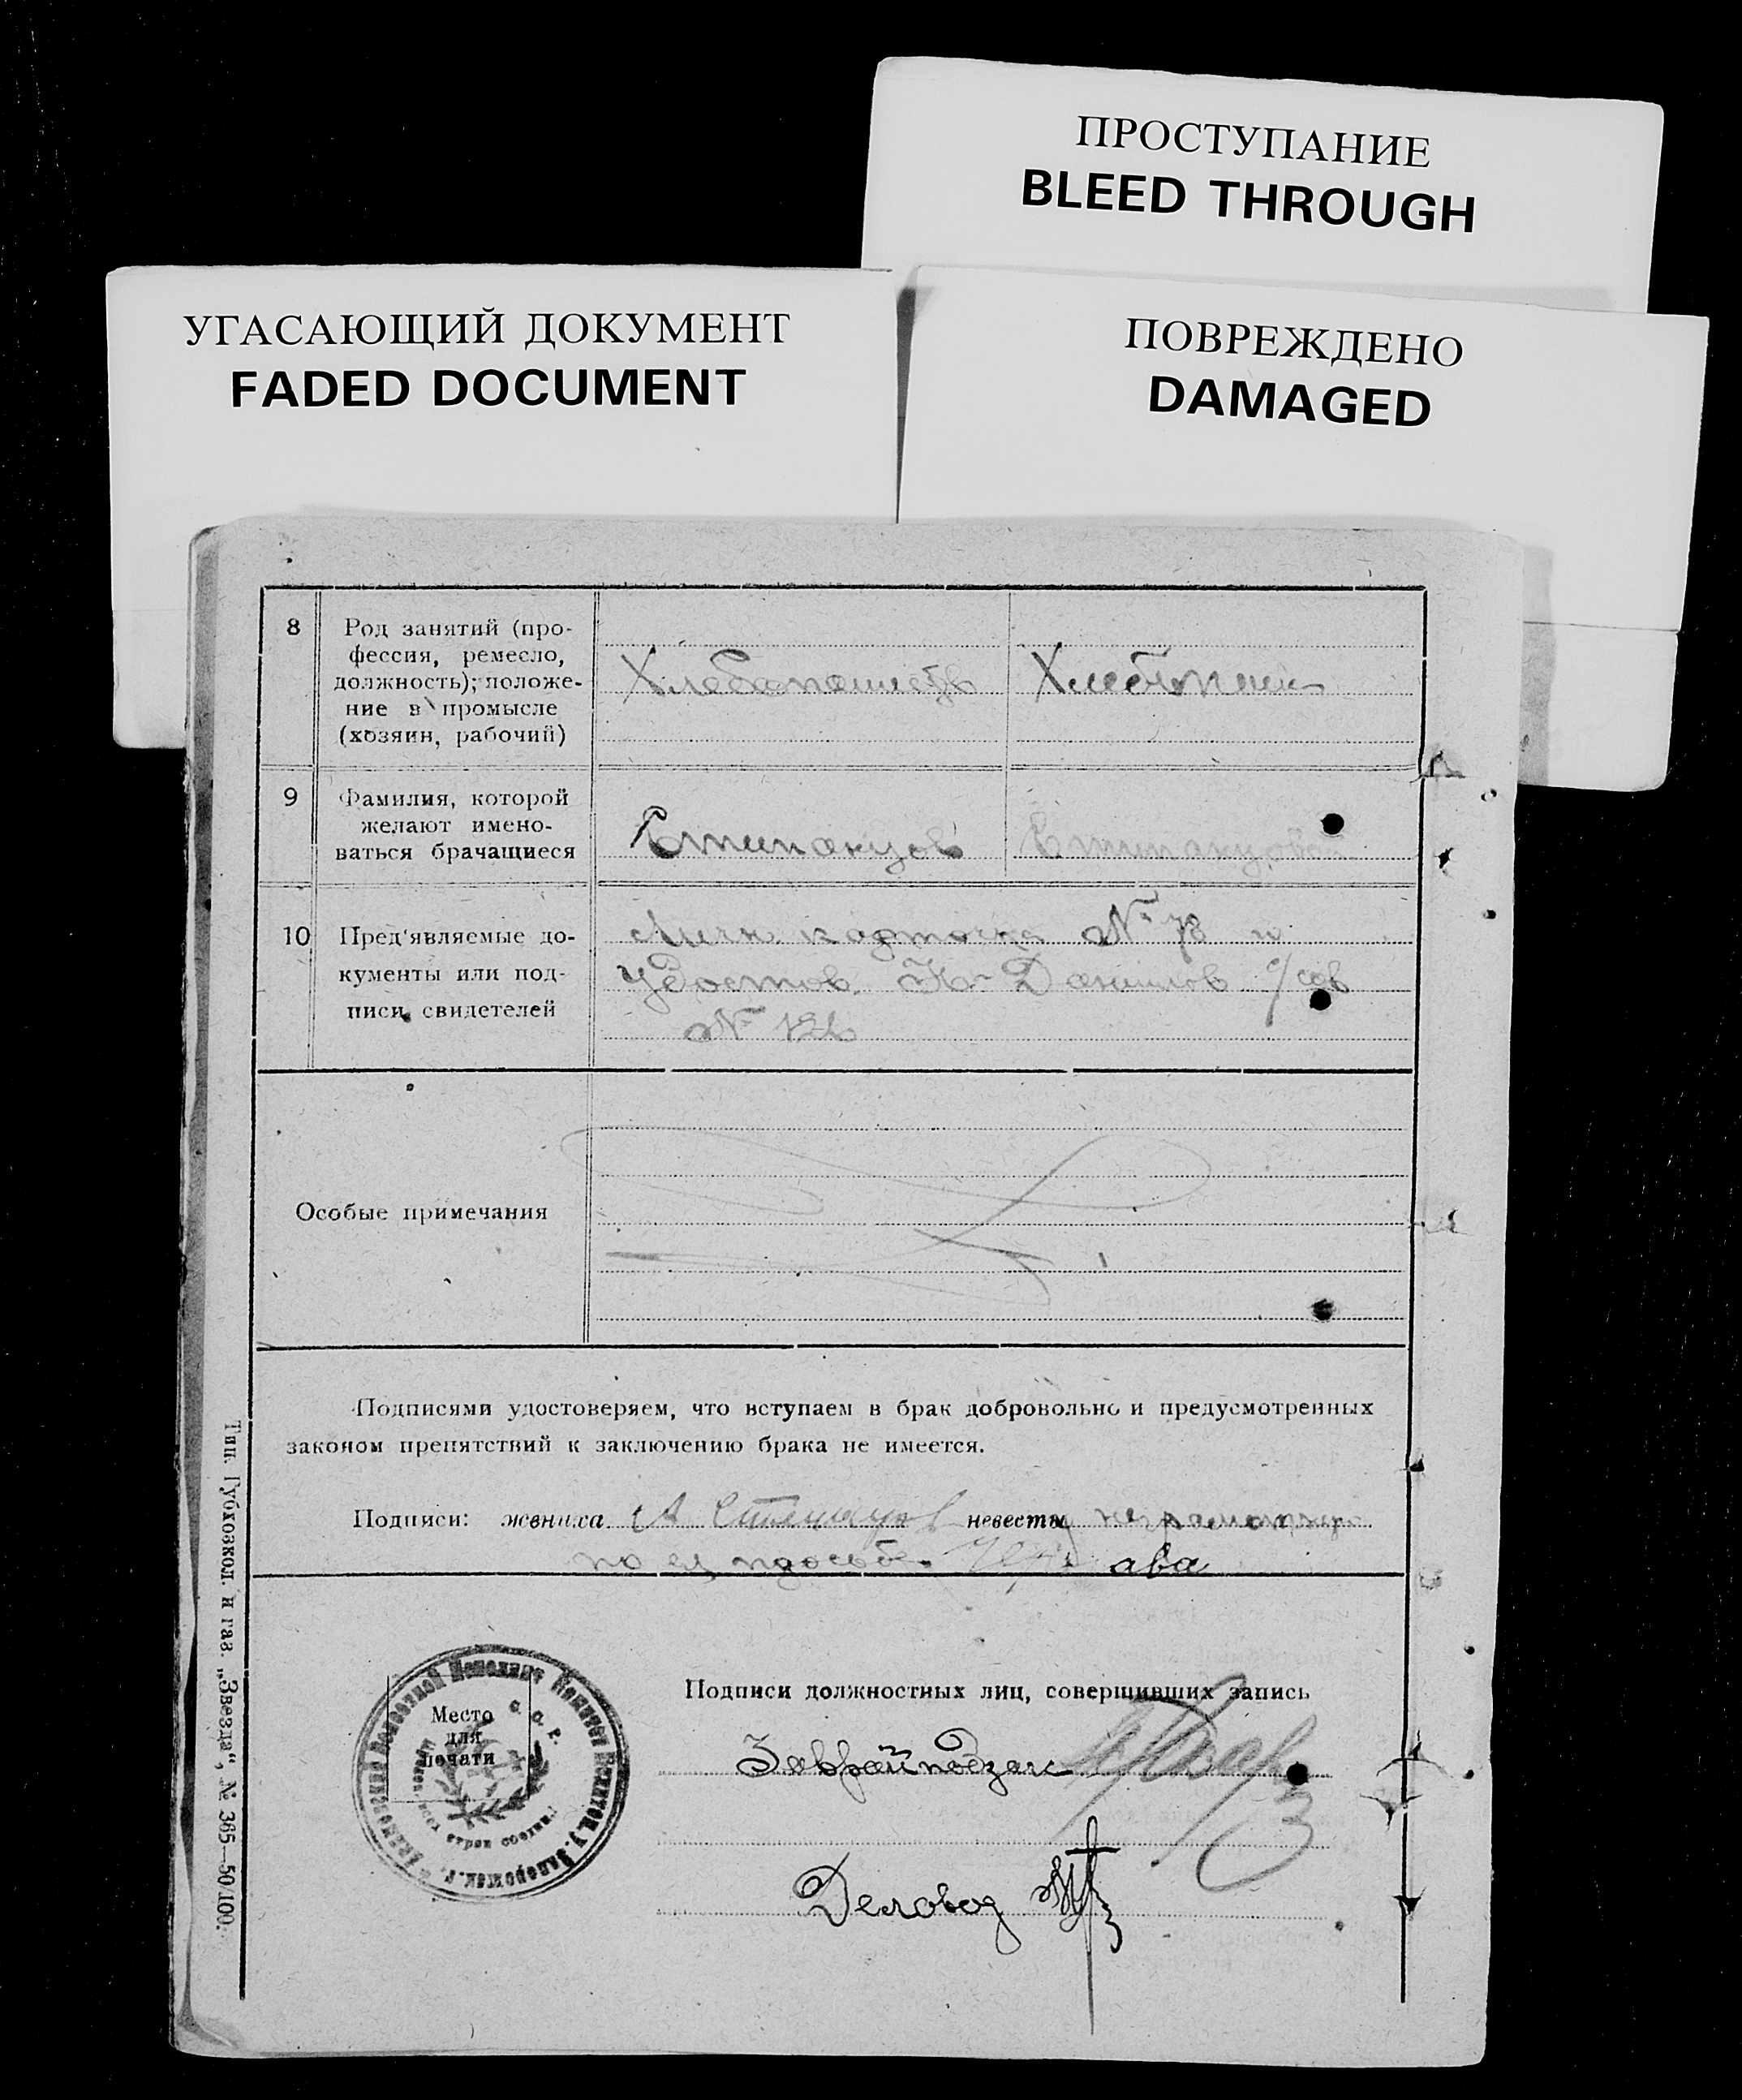 ПРОСТУПАНИЕ
BLEED THROUGH
УГАСАЮЩИЙ ДОКУМЕНТ
FADED DOCUMENT
ПОВРЕЖДЕНО
DAMAGED
8
Род занятий (про-
фессия, ремесло,
должность); положе-
ние в промысле
(хозяин, рабочий)
Хлебопашеств
Хлебопаш
9
Фамилия, которой
желают имено-
ваться брачащиеся
10
Пред'являемые до-
кументы или под-
писи свидетелей
Личн карточка № 78 и
удостов. Данилов с/сов
№
Особые примечания
Подписями удостоверяем, что вступаем в брак добровольно и предусмотренных
законом препятствий к заключению брака не имеется.
Подписи: жениха невесты неграмотную
по ея просьбе
Место
для
печати
Подписи должностных лиц, совершивших запись
Завройподзаг
Деловод
Тип. Губхозкол. и газ. „Звезда“, № 365—50/100.